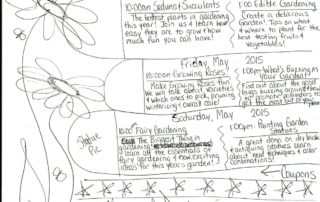 10:00am Sedums + Succulents
The hottest plants in gardening
this year! Join us & learn how
easy they are to grow & how
much fun you can have!
1:00 Edible Gardening
Create a delicious
Garden! Tips on what
& where to plant for the
best tasting fruits &
vegetables!
Friday, May 2015
10:00am-Growing Roses
Make Growing Roses fun
we will talk about varieties
& which ones to pick, pruning,
wintering + overall care!
1:00pm-What's Bugging in
your Garden!
Find out about the good
bugs buzzing around & how
to get the most out of your
Saturday, May 2015
Statue
10:00 Fairy Gardening
The Biggest thing in
gardening
learn all the essentials of
fairy gardening & new exciting
ideas for this years garden!
1:00pm-Painting Garden
Statues
A great demo on dry brush
& antiquing statues learn
about new techniques & color
combinations!
Coupons